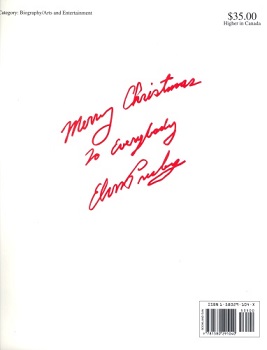 Category: Biography/Arts and Entertainment
$35.00
Higher in Canada
Merry Christmas
To Everybody
Elvis Presley